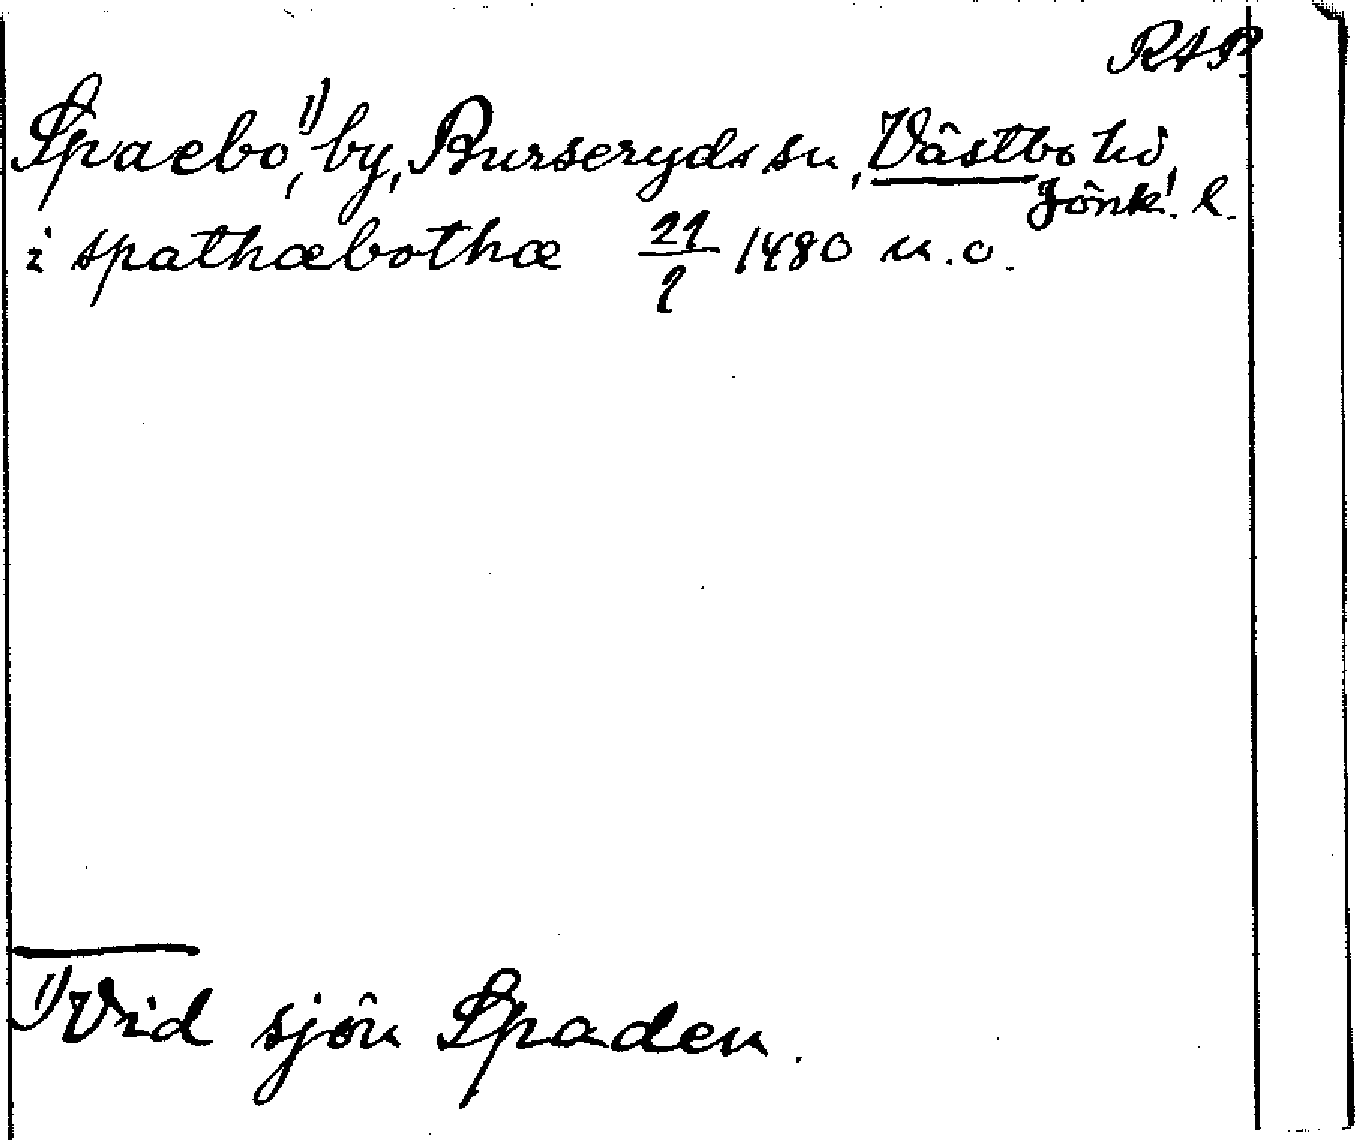 RAP
Spaebo,¹⁾ by, Burseryds sn, Västbo hd,
Jönk. l.
i spathæbothæ 21/2 1480 u.o.
¹⁾ Vid sjön Spaden.